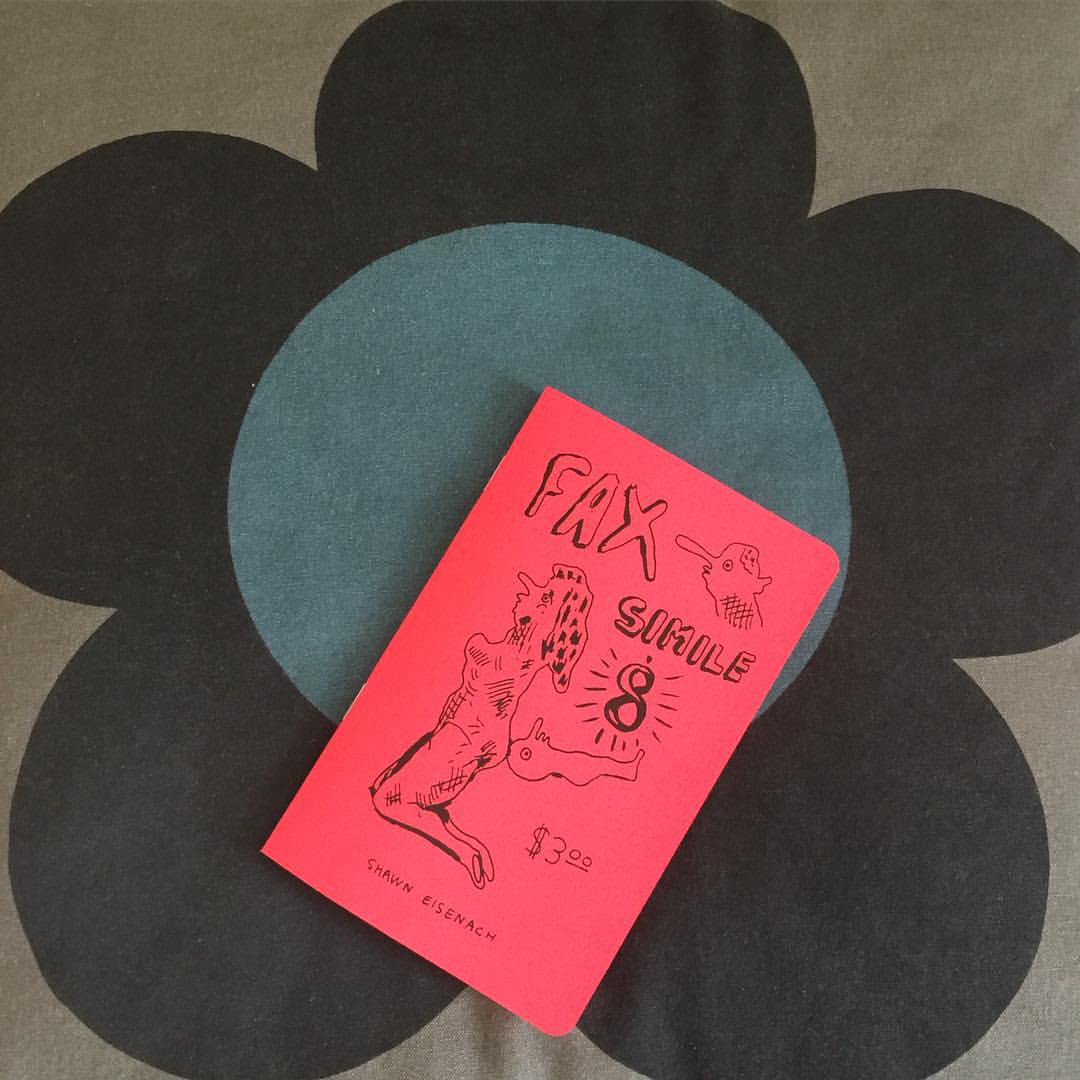 FAX
SIMILE
8
$3.00
SHAWN EISENACH